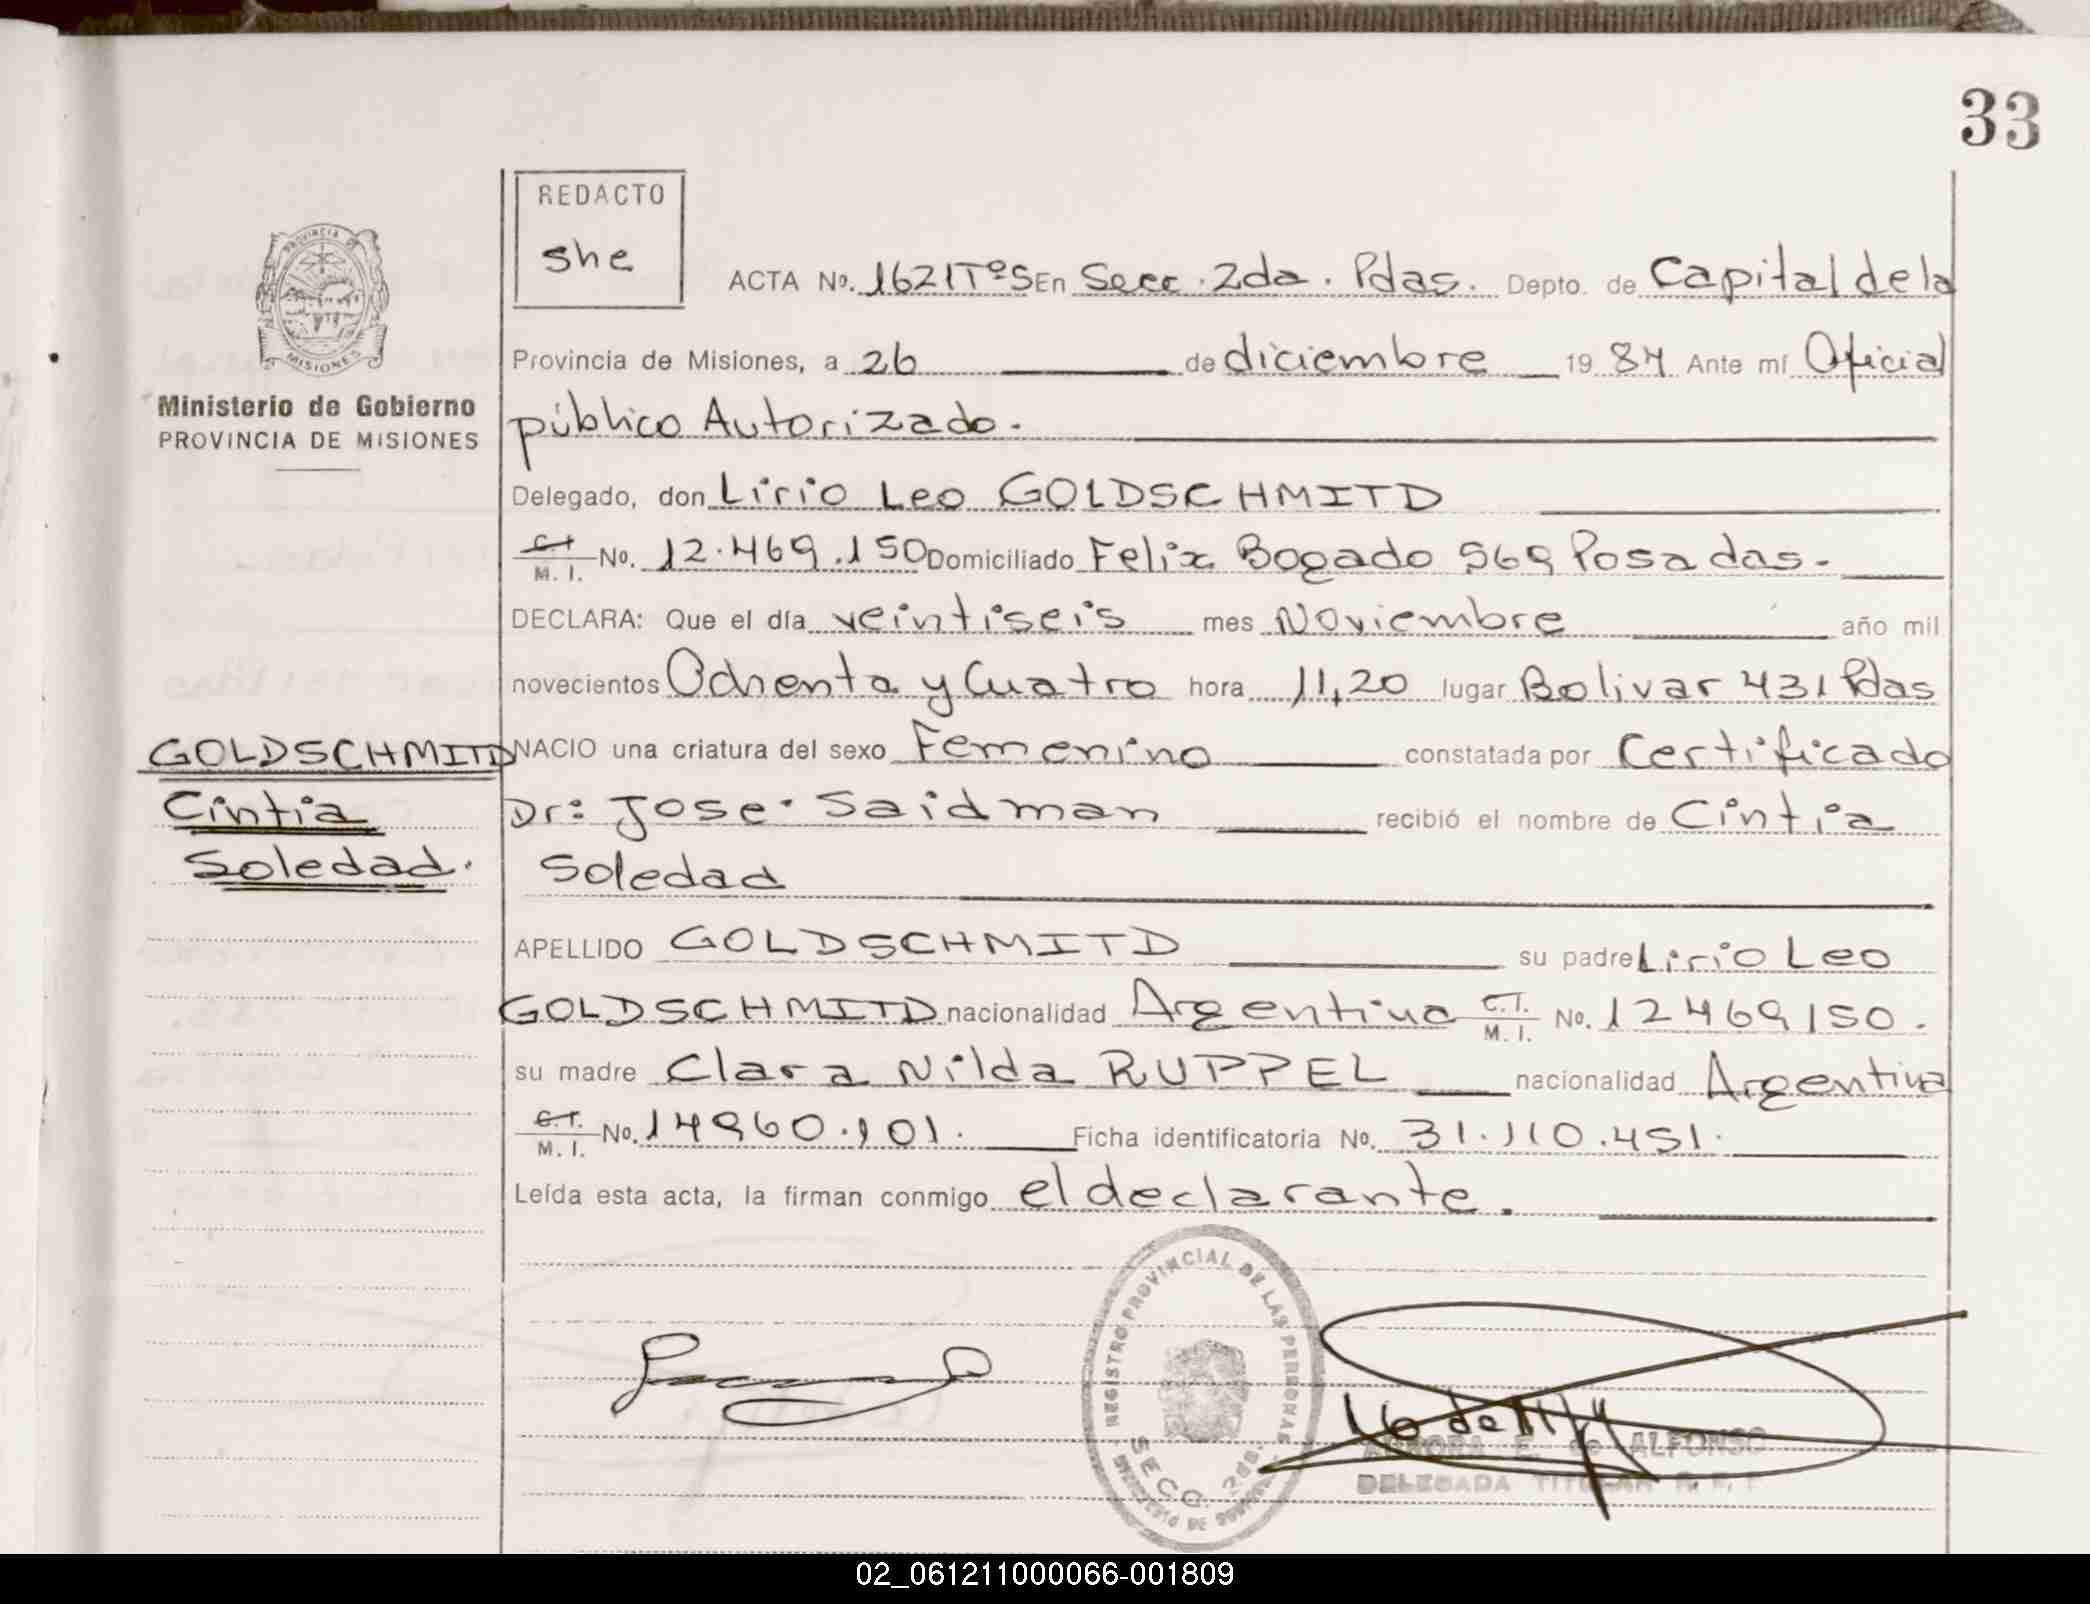 33
REDACTO
she
PROVINCIA DE
MISIONES
Ministerio de Gobierno
PROVINCIA DE MISIONES
ACTA No. 1621 Tº5 En Secc. 2da. Pdas. Depto. de Capital de la
Provincia de Misiones, a 26 de diciembre 1984 Ante mí Oficial
público Autorizado.
Delegado, don Lirio Leo GOLDSCHMITD
C.I. M. I. No. 12.469.150 Domiciliado Felix Bogado 569 Posadas.
DECLARA: Que el día veintiseis mes Noviembre año mil
novecientos Ochenta y Cuatro hora 11,20 lugar Bolivar 431 Pdas
NACIO una criatura del sexo Femenino constatada por Certificado
Dr: Jose Saidman recibió el nombre de Cintia
Soledad
GOLDSCHMITD
Cintia
Soledad.
APELLIDO GOLDSCHMITD su padre Lirio Leo
GOLDSCHMITD nacionalidad Argentina C.I. M. I. No. 12469150.
su madre Clara Nilda RUPPEL nacionalidad Argentina
C.I. M. I. No. 14960.101. Ficha identificatoria No. 31.110.451.
Leída esta acta, la firman conmigo el declarante.
REGISTRO PROVINCIAL DE LAS PERSONAS
SECC. 2da.
E. de ALFONSO
DELEGADA TITULAR
02_061211000066-001809